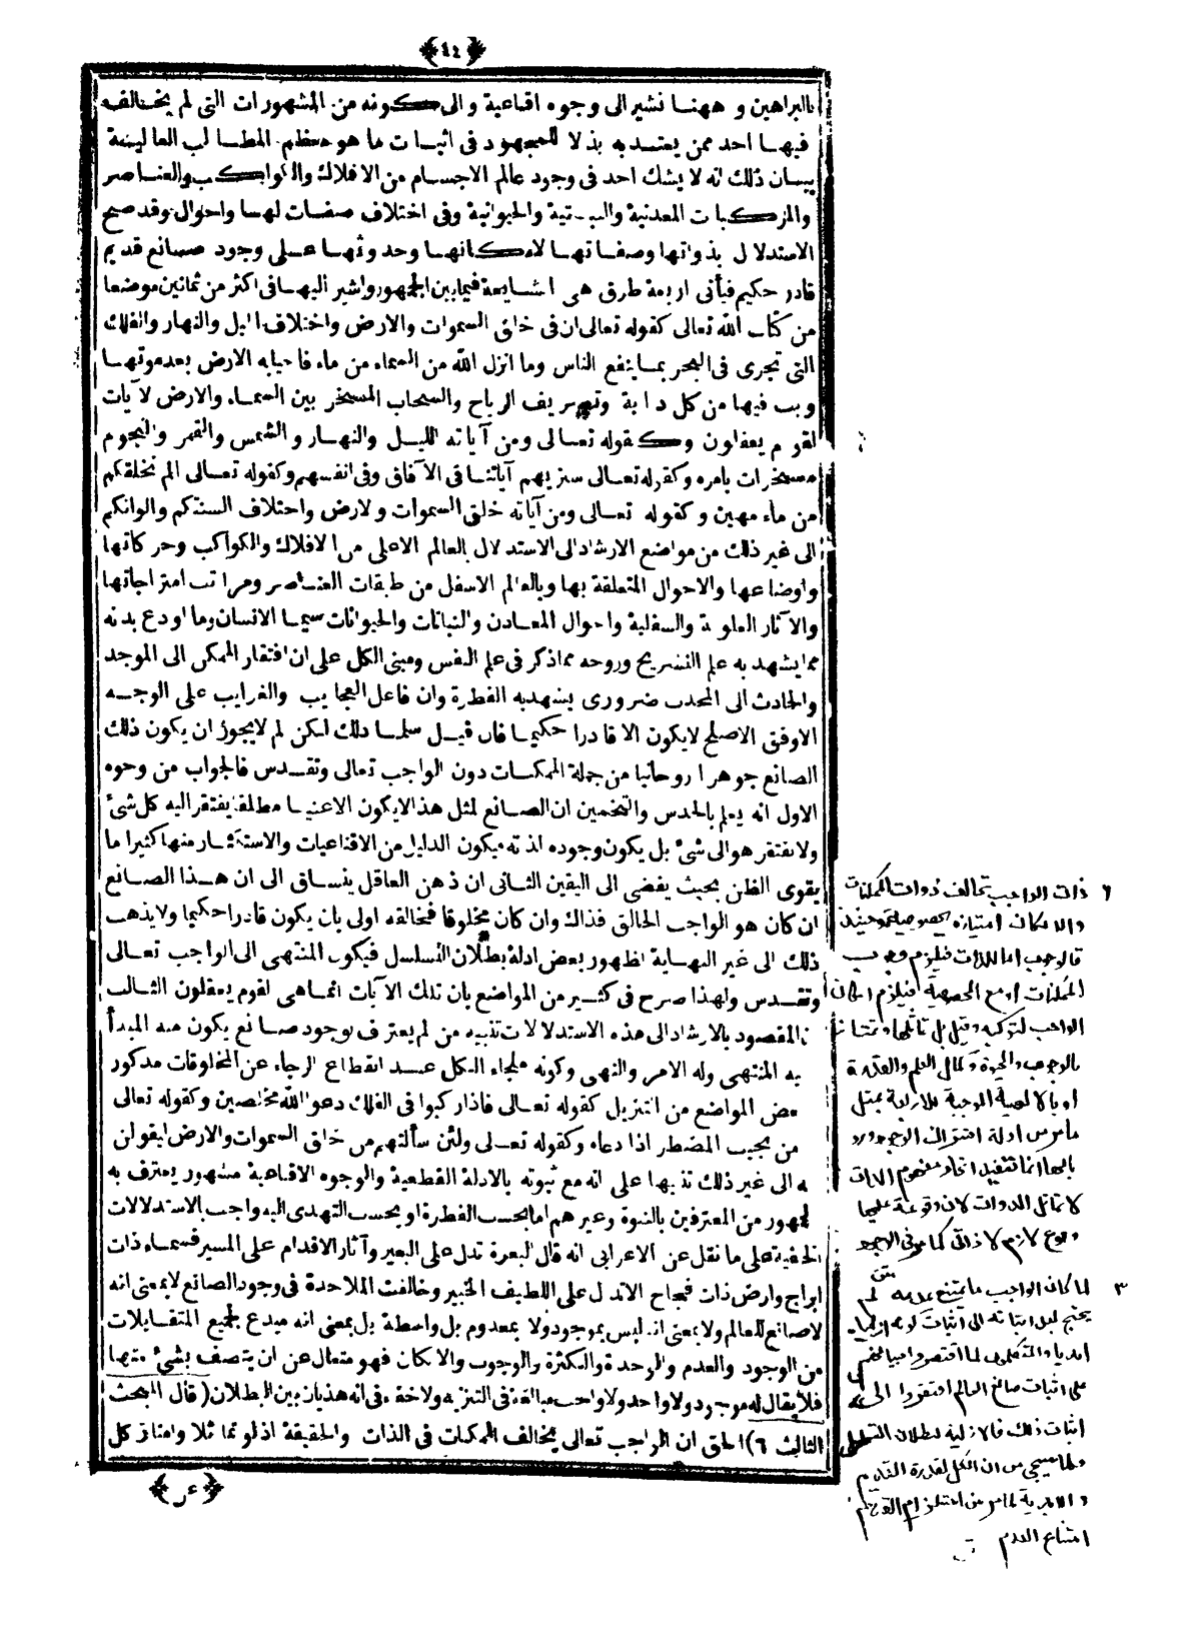 ﴿٤٤﴾
بالبراهين و ههنا نشير الى وجوه اقناعية والى كونه من المشهورات التى لم يخالف
فيها احد ممن يعتد به بذلا للمجهود فى اثبات ما هو معظم المطالب العالية
بيان ذلك انه لا يشك احد فى وجود عالم الاجسام من الافلاك والكواكب والعناصر
والمركبات المعدنية والنباتية والحيوانية وفى اختلاف صفات لها واحوال وقد صح
الاستدلال بذواتها وصفاتها لامكانها وحدوثها على وجود صانع قديم
قادر حكيم فيأتى اربعة طرق هى الشايعة فيما بين الجمهور واشير اليها فى اكثر من ثمانين موضعا
من كتاب الله تعالى كقوله تعالى ان فى خلق السموات والارض واختلاف الليل والنهار والفلك
التى تجرى فى البحر بما ينفع الناس وما انزل الله من السماء من ماء فاحيابه الارض بعد موتها
وبث فيها من كل دابة وتصريف الرياح والسحاب المسخر بين السماء والارض لآيات
لقوم يعقلون وكقوله تعالى ومن آياته الليل والنهار والشمس والقمر والنجوم
مسخرات بامره وكقوله تعالى سنريهم آياتنا فى الآفاق وفى انفسهم وكقوله تعالى الم نخلقكم
من ماء مهين وكقوله تعالى ومن آياته خلق السموات ولارض واختلاف السنتكم والوانكم
الى غير ذلك من مواضع الارشاد الى الاستدلال بالعالم الاعلى من الافلاك والكواكب وحركاتها
واوضاعها والاحوال المتعلقة بها وبالعالم الاسفل من طبقات العناصر ومراتب امتزاجاتها
والآثار العلوية والسفلية واحوال المعادن والنباتات والحيوانات سيما الانسان وما اودع بدنه
مما يشهد به علم التشريح وروحه مما ذكر فى علم النفس ومبنى الكل على ان افتقار الممكن الى الموجد
والحادث الى المحدث ضرورى يشهد به الفطرة وان فاعل العجايب والغرايب على الوجه
الاوفق الاصلح لايكون الا قادرا حكيما فان قيل سلمنا ذلك لكن لم لايجوز ان يكون ذلك
الصانع جوهرا روحانيا من جملة الممكنات دون الواجب تعالى وتقدس فالجواب من وجوه
الاول انه يعلم بالحدس والتخمين ان الصانع لمثل هذا لايكون الاغنيا مطلقا يفتقر اليه كل شئ
ولايفتقر هو الى شئ بل يكون وجوده لذاته فيكون الدليل من الاقناعيات والاستكثار منها كثيرا ما
يقوى الظن بحيث يفضى الى اليقين الثانى ان ذهن العاقل ينساق الى ان هذا الصانع
ان كان هو الواجب الخالق فذاك وان كان مخلوقا فخالقه اولى بان يكون قادرا حكيما ولايذهب
ذلك الى غير النهاية لظهور بعض ادلة بطلان التسلسل فيكون المنتهى الى الواجب تعالى
وتقدس ولهذا صرح فى كثير من المواضع بان تلك الآيات انما هى لقوم يعقلون الثالث
ان المقصود بالارشاد الى هذه الاستدلالات تنبيه من لم يعترف بوجود صانع يكون منه المبدأ
يه المنتهى وله الامر والنهى وكونه ملجاء الكل عند انقطاع الرجاء عن المخلوقات مذكور
عض المواضع من التنزيل كقوله تعالى فاذا ركبوا فى الفلك دعوا الله مخلصين وكقوله تعالى
من يجيب المضطر اذا دعاه وكقوله تعالى ولئن سألتهم من خلق السموات والارض ليقولن
ه الى غير ذلك تنبيها على انه مع ثبوته بالادلة القطعية والوجوه الاقناعية مشهور يعترف به
لجمهور من المعترفين بالنبوة وغيرهم اما بحسب الفطرة او بحسب التهدى اليه واجب الاستدلالات
الخفية على ما نقل عن الاعرابى انه قال البعرة تدل على البعير وآثار الاقدام على المسير فسماء ذات
ابراج وارض ذات فجاج الا تدل على اللطيف الخبير وخالفت الملاحدة فى وجود الصانع لا بمعنى انه
لا صانع للعالم ولا بمعنى انه ليس بموجود ولا بمعدوم بل واسطة بل بمعنى انه مبدع لجميع المتقابلات
من الوجود والعدم والوحدة والكثرة والوجوب والامكان فهو متعال عن ان يتصف بشئ منها
فلا يقال له موجود ولا واحد ولا واجب مبالغة فى التنزيه ولا خفاء فى انه هذيان بين البطلان (قال المبحث
الثالث ٦) الحق ان الواجب تعالى يخالف الممكنات فى الذات والحقيقة اذ لو تماثلا وامتاز كل
٦ ذات الواجب تخالف ذوات الممكنات
والا لكان امتيازه بخصوصية وحينئذ
فالوجوب اما للذات فيلزم وجوب
الممكنات او مع الخصوصية فيلزم امكان
الواجب لتركبه وقيل بل تماثلها وتمتاز
بالوجوب والحيوة وكمال العلم والقدرة
او بالالهية الموجبة للاربعة بمثل
ما مر من ادلة اشتراك الوجود ورد
بانها انما تفيد اتحاد مفهوم الذات
لا تماثل الذوات لان وقوعه عليها
وقوع لازم لا ذاتى كما مر فى الوجود
متن
٣ لما كان الواجب ما يمتنع عدمه لم
يحتج بعد اثباته الى اثبات كونه ازليا
ابديا والمتكلمون لما اقتصروا
على اثبات صانع العالم افتقروا الى
اثبات ذلك فالازلية لبطلان التسلسل
ولما سيجئ من ان الكل لقدرة القديم
والابدية لما مر من استلزام القدم
امتناع العدم
﴿ عن ﴾